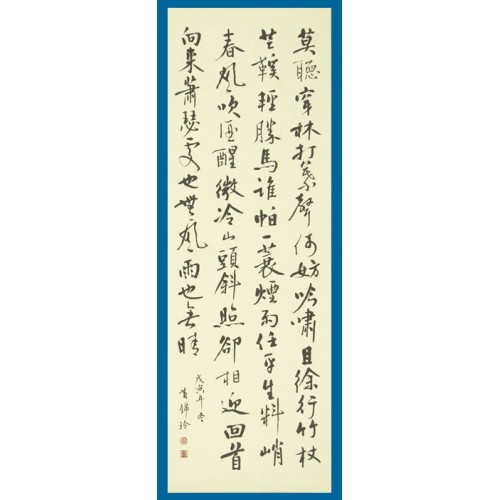 莫聽穿林打葉聲何妨吟嘯且徐行竹杖
芒鞵輕勝馬誰怕一蓑煙雨任平生料峭
春風吹酒醒微冷山頭斜照卻相迎回首
向來蕭瑟處也無風雨也無晴
戊寅年冬
錦玲